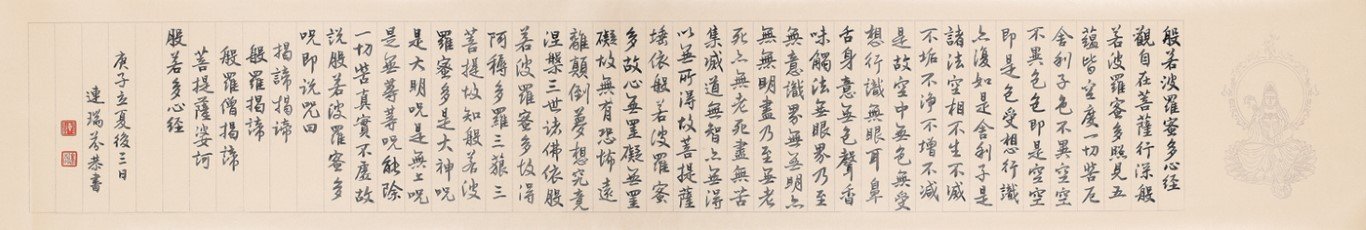 般若波羅蜜多心經
觀自在菩薩行深般
若波羅蜜多照見五
蘊皆空度一切苦厄
舍利子色不異空空
不異色色即是空空
即是色受想行識
亦復如是舍利子是
諸法空相不生不滅
不垢不淨不增不減
是故空中無色無受
想行識無眼耳鼻
舌身意無色聲香
味觸法無眼界乃至
無意識界無無明亦
無無明盡乃至無老
死亦無老死盡無苦
集滅道無智亦無得
以無所得故菩提薩
埵依般若波羅蜜
多故心無罣礙無罣
礙故無有恐怖遠
離顛倒夢想究竟
涅槃三世諸佛依般
若波羅蜜多故得
阿耨多羅三藐三
菩提故知般若波
羅蜜多是大神呪
是大明呪是無上呪
是無等等呪能除
一切苦真實不虛故
說般若波羅蜜多
呪即說呪曰
揭諦揭諦
般羅揭諦
般羅僧揭諦
菩提薩婆訶
般若多心經
庚子立夏後三日
連瑞芬恭書